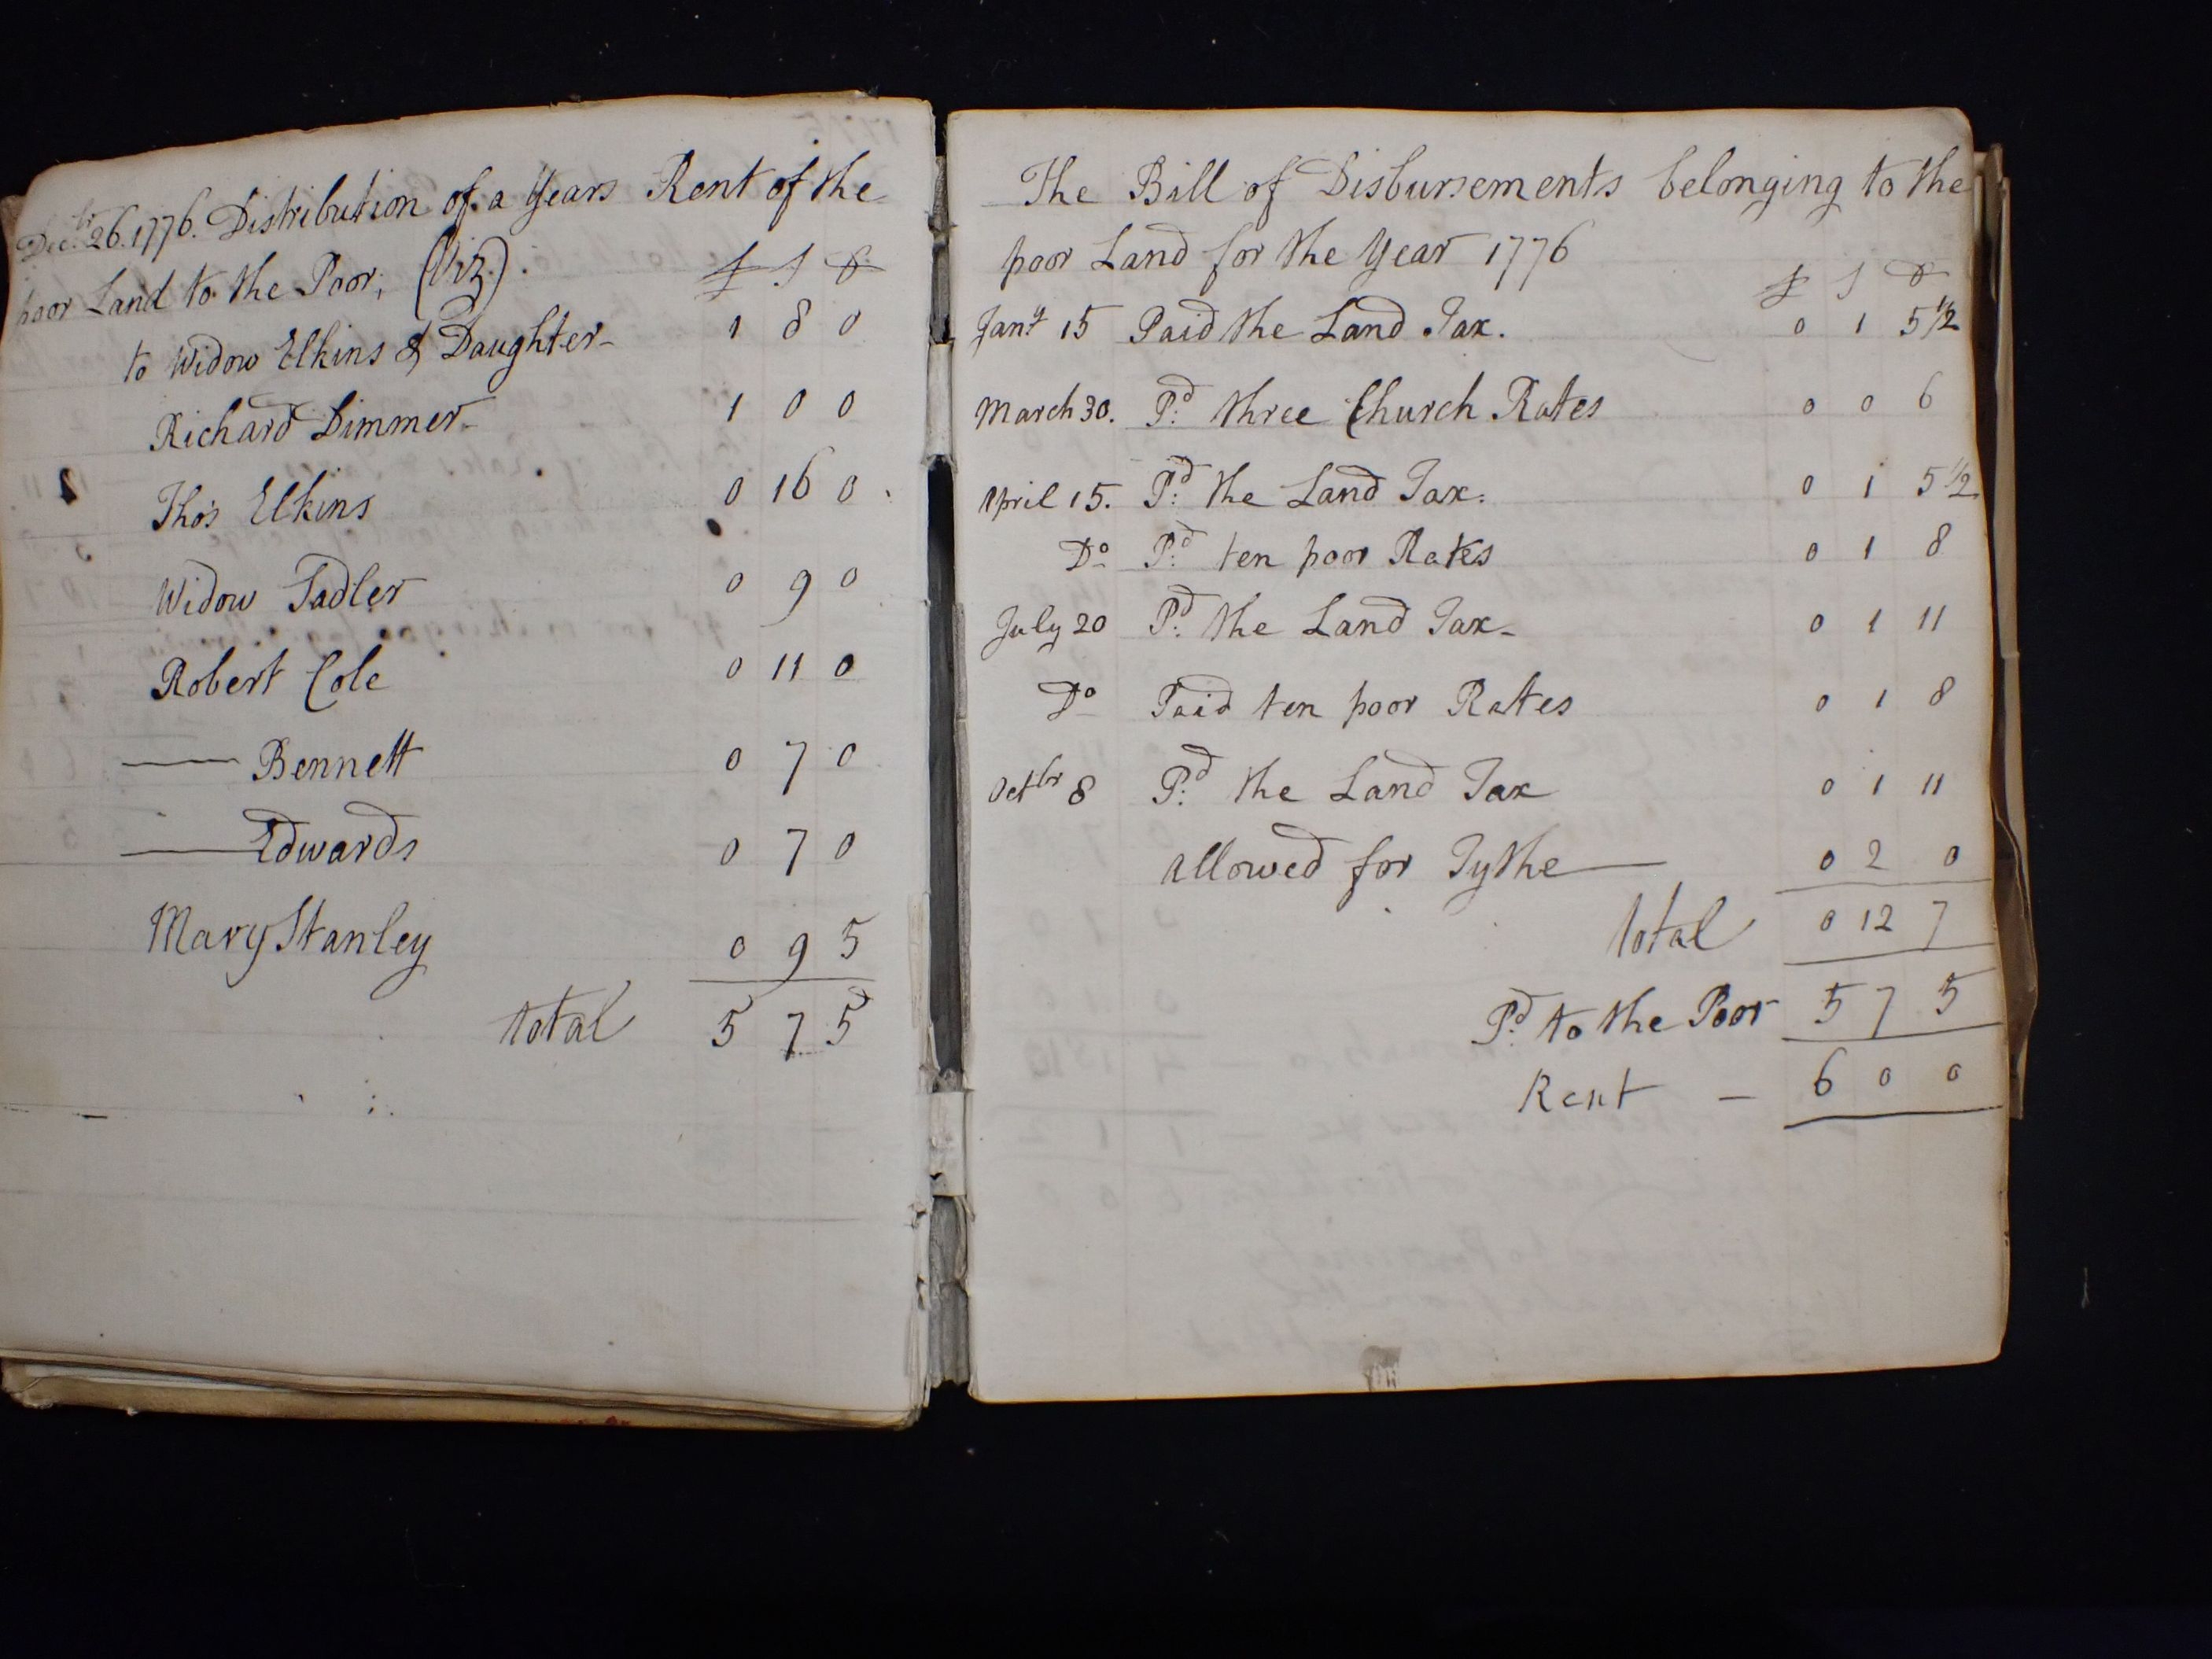 Dec.br 26. 1776. Distribution of a Years Rent of the
poor Land to the Poor; (Viz).
£ s d
to Widow Elkins & Daughter 1 8 0
Richard Dimmer 1 0 0
Thos Elkins 0 16 0
Widow Sadler 0 9 0
Robert Cole 0 11 0
—— Bennett 0 7 0
—— Edwards 0 7 0
Mary Stanley 0 9 5
total 5 7 5
The Bill of Disbursements belonging to the
poor Land for the Year 1776
£ s d
Jany 15 Paid the Land Tax. 0 1 5 1/2
March 30. Pd three Church Rates 0 0 6
April 15. Pd the Land Tax. 0 1 5 1/2
Do Pd ten poor Rates 0 1 8
July 20 Pd the Land Tax 0 1 11
Do Paid ten poor Rates 0 1 8
Octbr 8 Pd the Land Tax 0 1 11
allowed for Tythe — 0 2 0
total 0 12 7
Pd to the Poor 5 7 5
Rent — 6 0 0